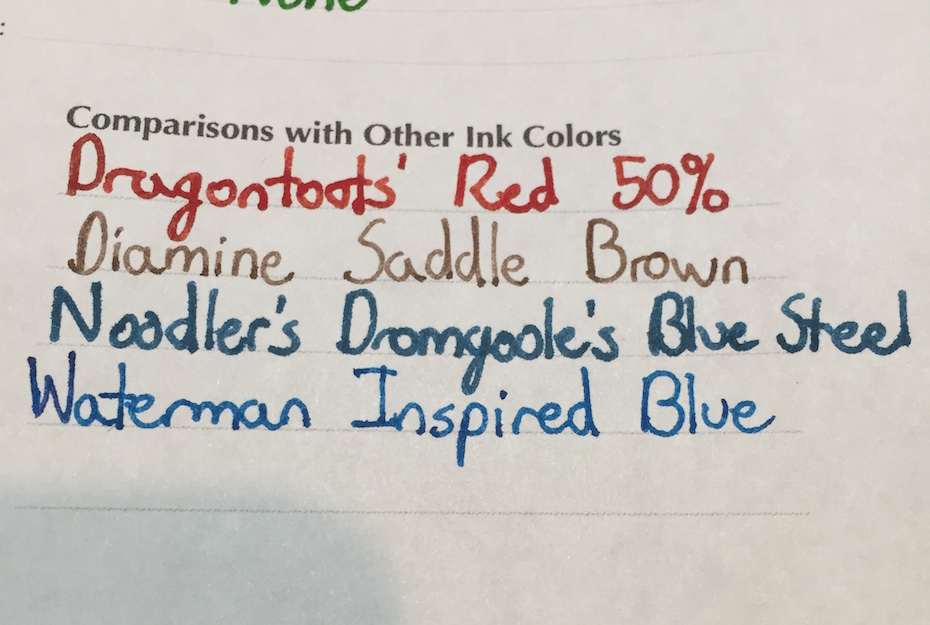 None
:
Comparisons with Other Ink Colors
Dragontoots' Red 50%
Diamine Saddle Brown
Noodler's Dromgoole's Blue Steel
Waterman Inspired Blue